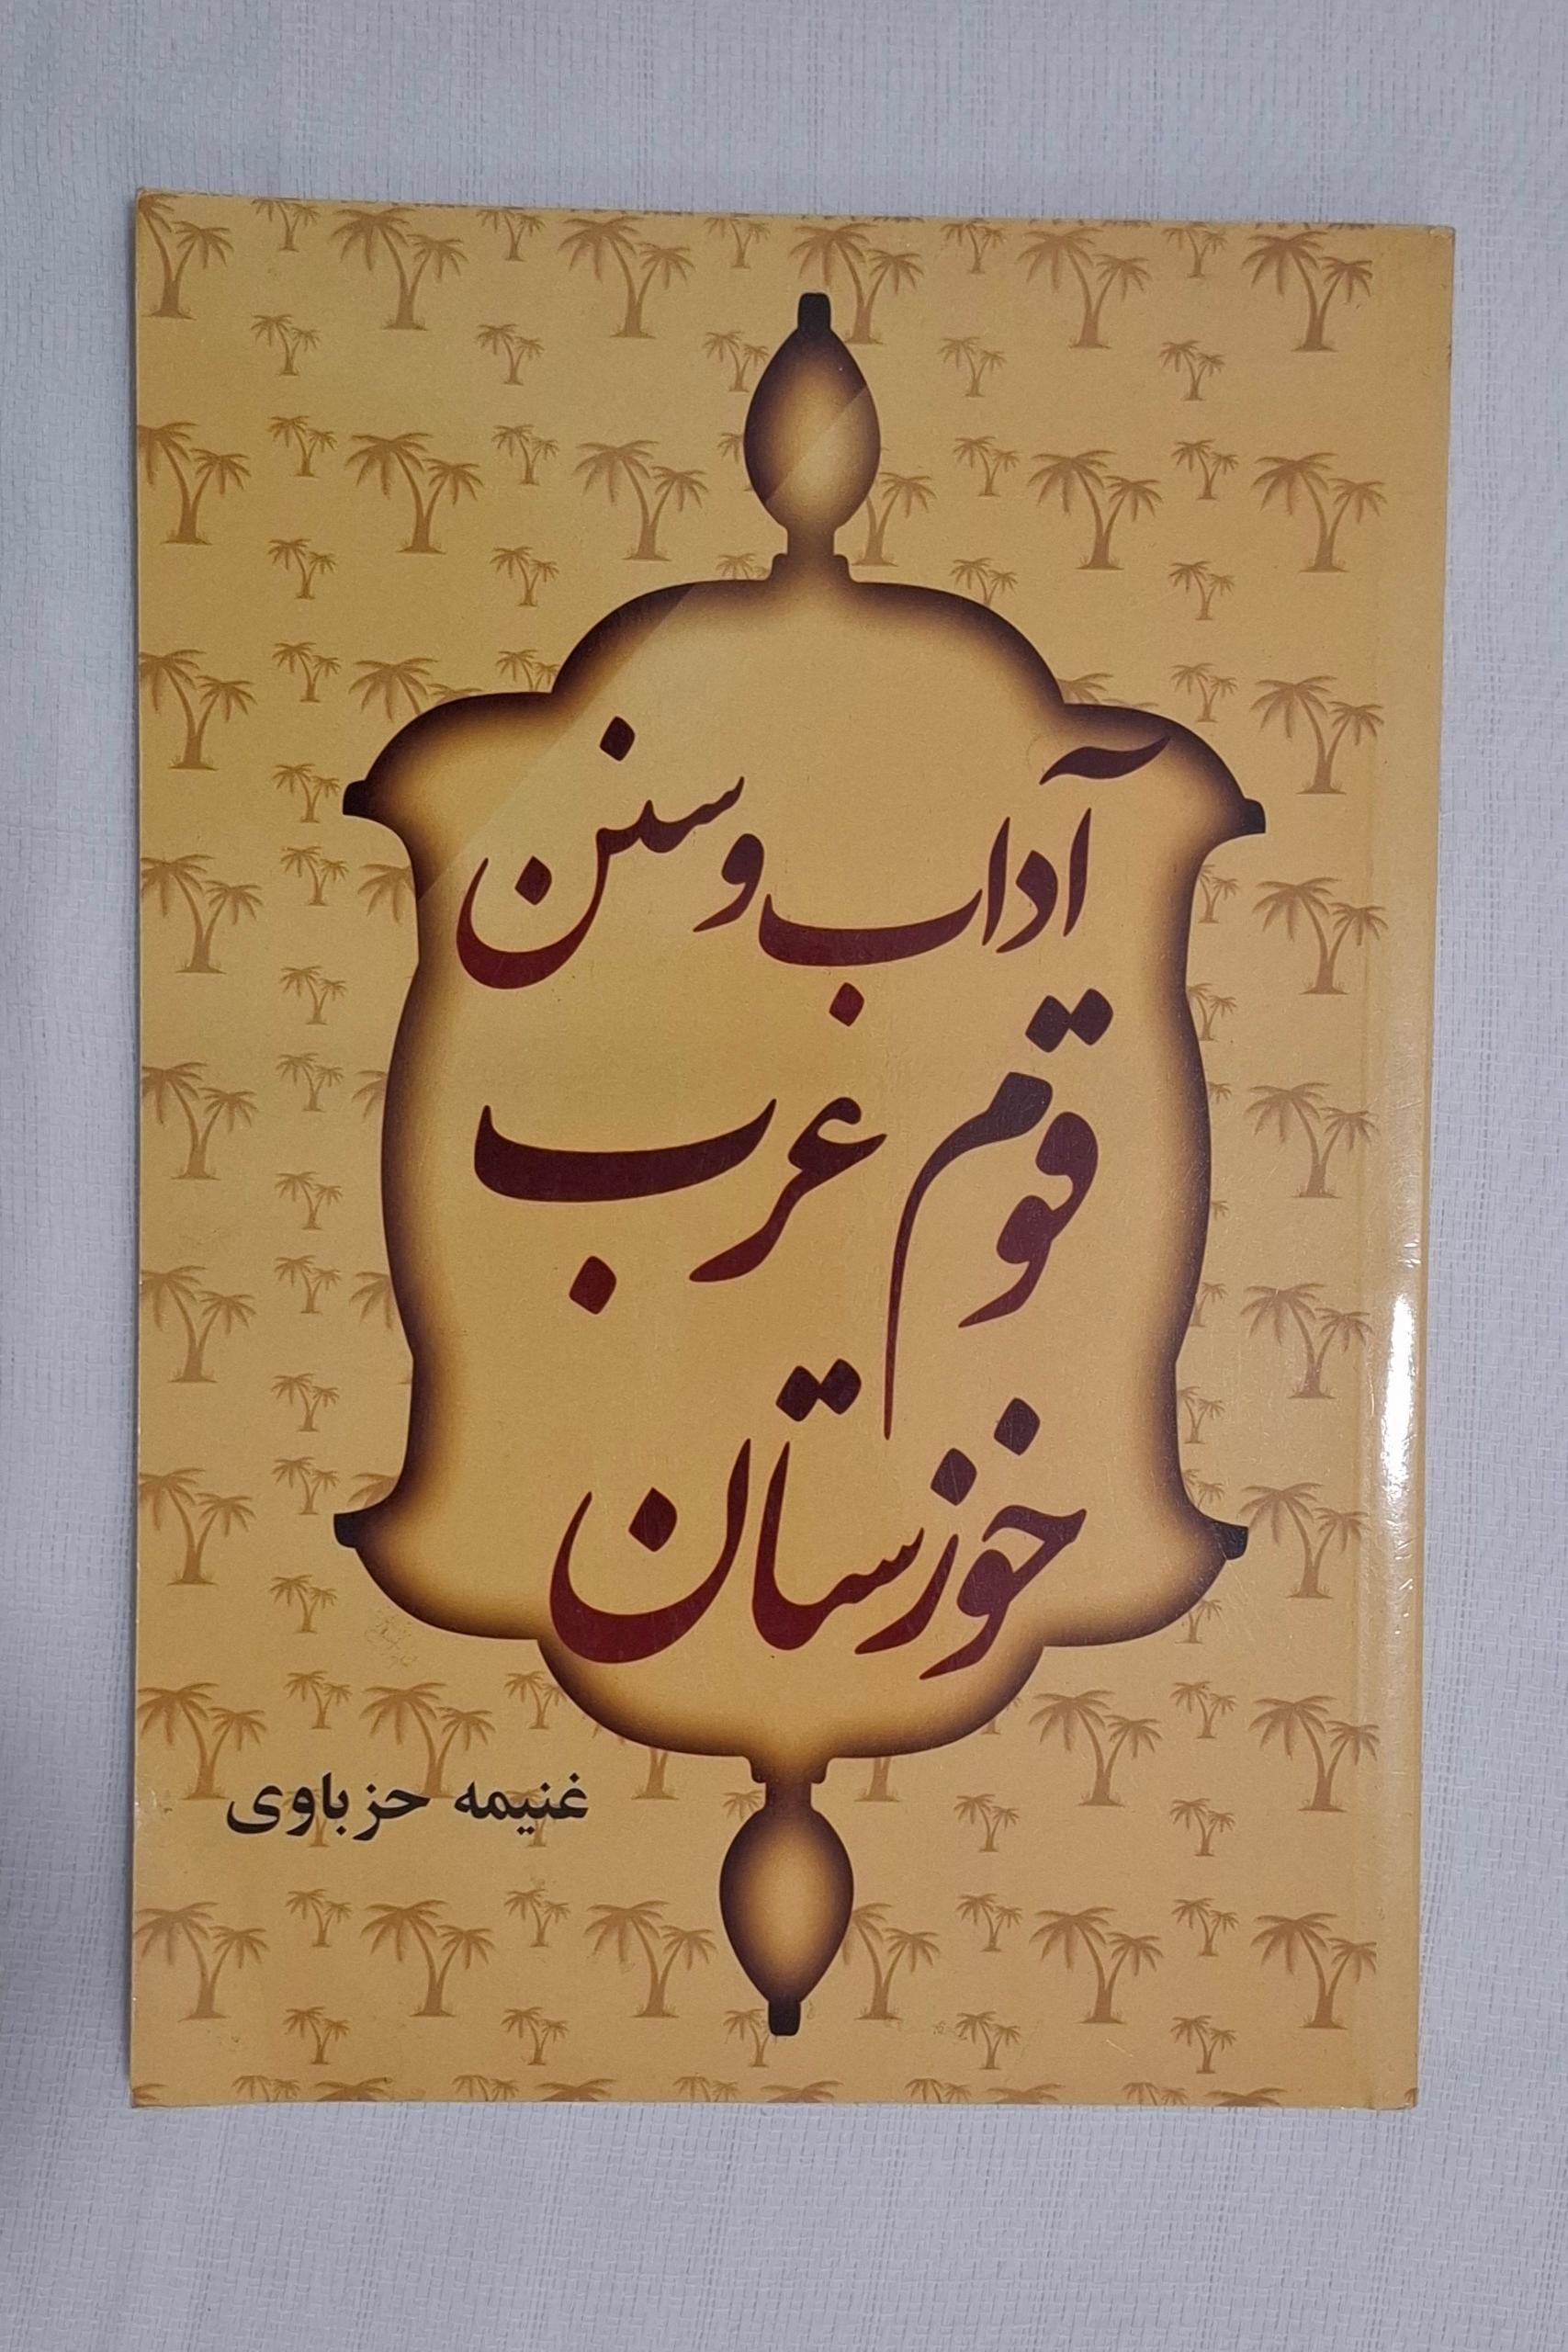 آداب و سنن
قوم عرب
خوزستان
غنیمه حزباوی